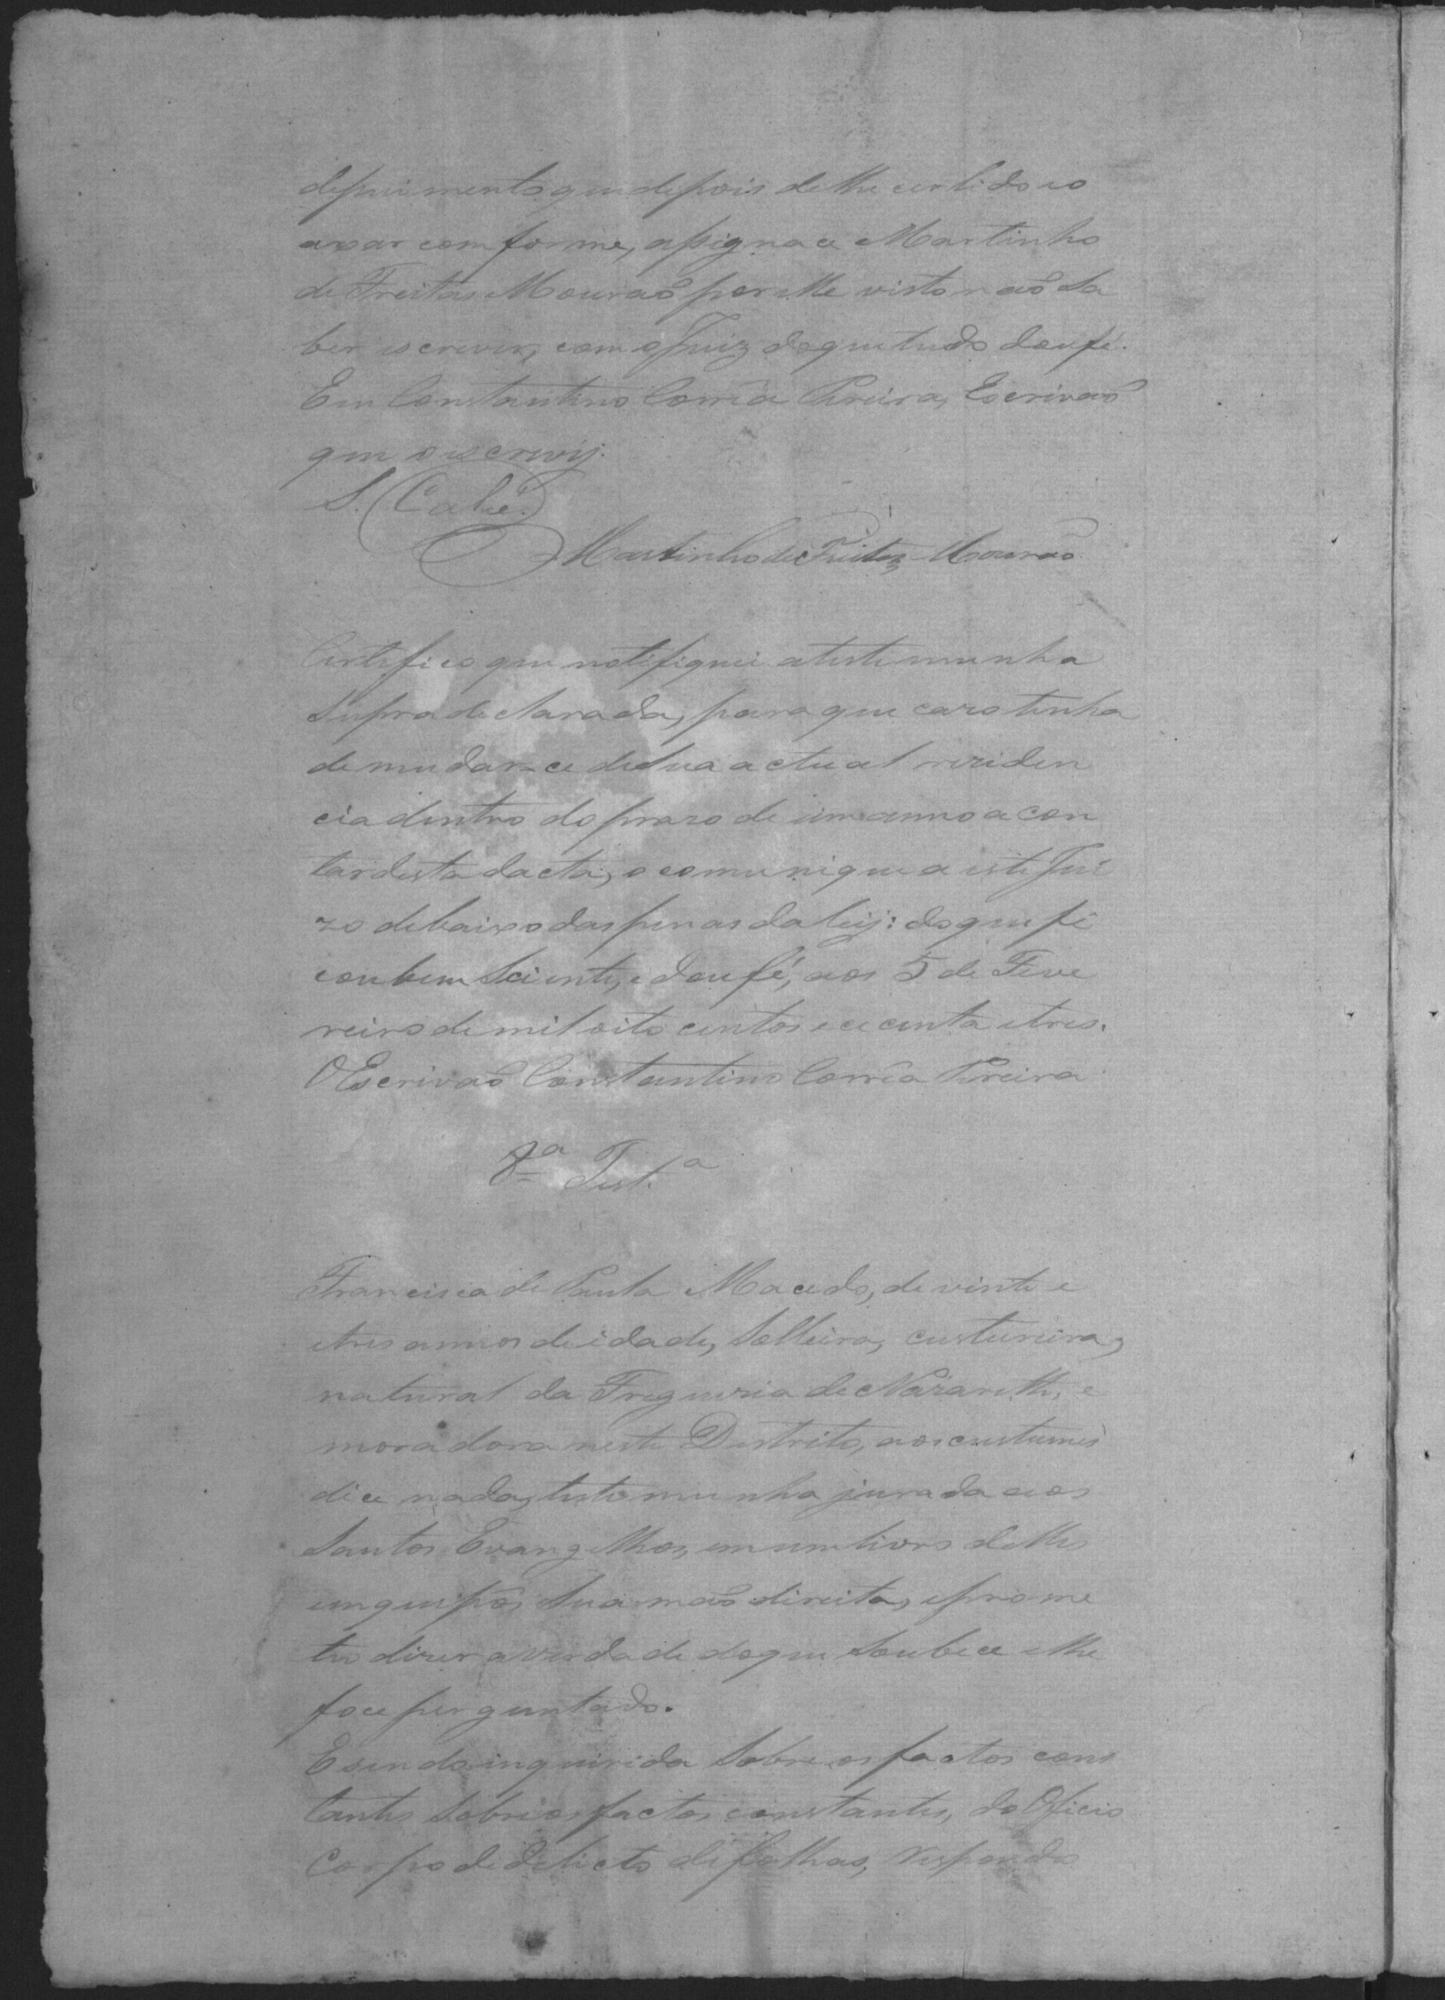 depuimento que depois de lhe ser lido e o
axar comforme, assigna ce Martinho
de Freitas Mourão por elle visto não sa
ber escrever, com o Juiz do que tudo dou fé.
Eu Constantino Corrêa Pereira, Escrivão
que o escrevy.
S. (Calé.)
Martinho de Freitas Mourão
Certifico que notifiquei a testemunha
supra declarada, para que cazo tenha
de mudar-ce de sua actual reziden
cia dentro do prazo de um anno a con
tar desta dacta, o comunique a este Jui
zo debaixo das penas da leij: do que fi
cou bem sciente, e dou fé, aos 5 de Feve
reiro de mil oito centos e cecenta e tres.
O Escrivaõ Constantino Corrêa Pereira
8ª Test.ª
Francisca de Paula Macedo, de vinte e
e tres annos de idade, solteira, custureira,
natural da Freguezia de Nazareth, e
moradora neste Destrito, aos custumes
dice nada, testemunha jurada aos
Santos Evangelhos, em um livro delles
em que pôs sua maõ direita, e prome
teo dizer a verdade do que soubece e lhe
foce perguntado.
E sendo inquirida sobre os factos cons
tantes sobre os factos constantes, do Oficio
Corpo de delicto de folhas, respondo